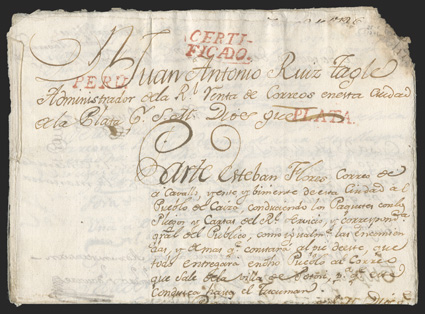 CERTI-
FICADO.
Juan Antonio Ruiz Tagle
PERU
Administrador de la Rl. Renta de Correos en esta Ciudad
de la Plata PLATA.
Parte Esteban Flores Correo de
a Cavallo, yente y biniente de esta Ciudad al
Pueblo de conduciendo los Paquetes con los
Pliegos y Cartas del Rl. Servicio, y correspond.
gral del Publico, como igualm. las encomien
das, y demas q. constará al pie de este, que
todo entregará en dho Pueblo al Correo
que Sale de la Villa de Potosi, q.
Conduce el Tucuman